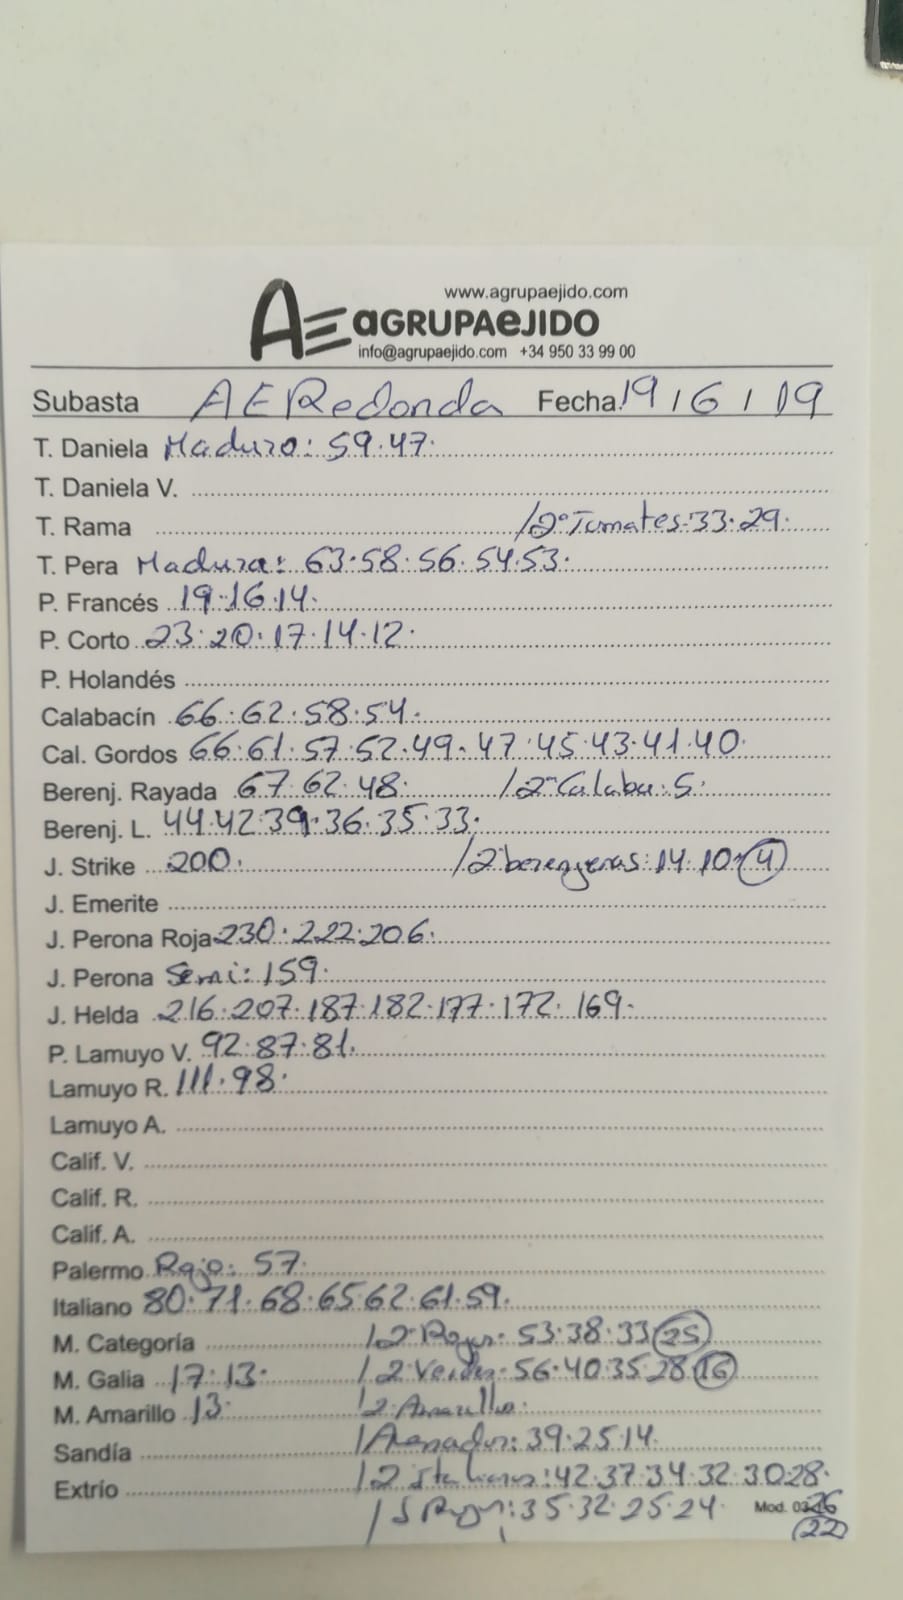 www.agrupaejido.com
AE aGRUPAeJIDO
info@agrupaejido.com +34 950 33 99 00
Subasta AERedonda Fecha 19/6/19
T. Daniela Maduro: 59.47.
T. Daniela V.
T. Rama /2ºTomates:33.29.
T. Pera Madura: 63.58.56.54.53.
P. Francés 19.16.14.
P. Corto 23.20.17.14.12.
P. Holandés
Calabacín 66.62.58.54.
Cal. Gordos 66.61.57.52.49.47.45.43.41.40.
Berenj. Rayada 67.62.48. /2ºCalaba:5.
Berenj. L. 44.42.39.36.35.33.
J. Strike 200. /2ºberenjenas:14.10.(4)
J. Emerite
J. Perona Roja 230.222.206.
J. Perona Semi:159.
J. Helda 216.207.187.182.177.172.169.
P. Lamuyo V. 92.87.81.
Lamuyo R. 111.98.
Lamuyo A.
Calif. V.
Calif. R.
Calif. A.
Palermo Rojo: 57.
Italiano 80.71.68.65.62.61.59.
M. Categoría /2ºRojos: 53.38.33(25)
M. Galia 17.13. /2ºVerdes:56.40.35.28(16)
M. Amarillo 13. /2ºAmarillos:
Sandía /Asenador:39.25.14.
Extrío /2ºItalianos:42.37.34.32.30.28.
35.32.25.24. Mod. 03 26
(22)